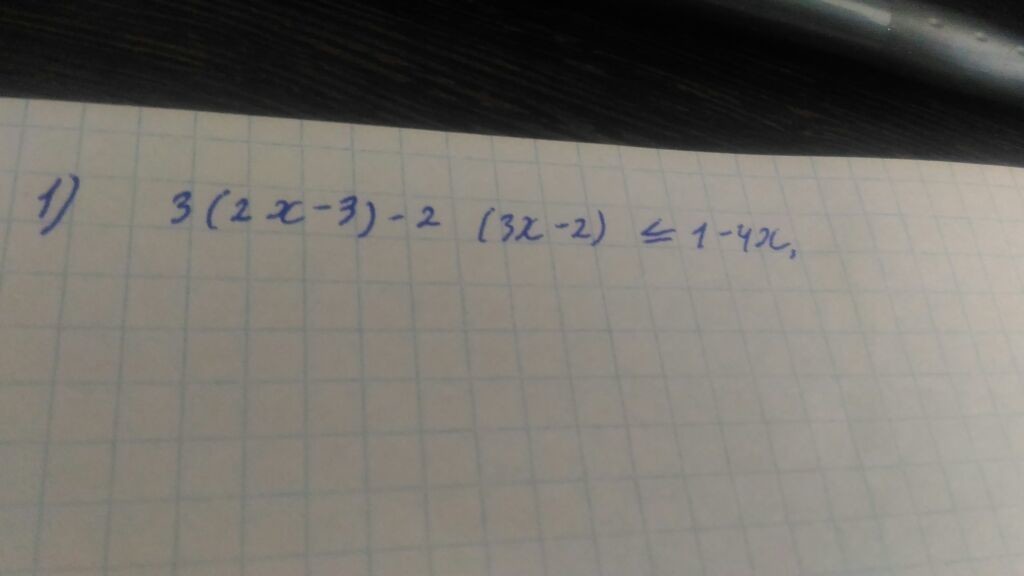 1) 3(2x-3)-2 (3x-2) ≤ 1-4x,